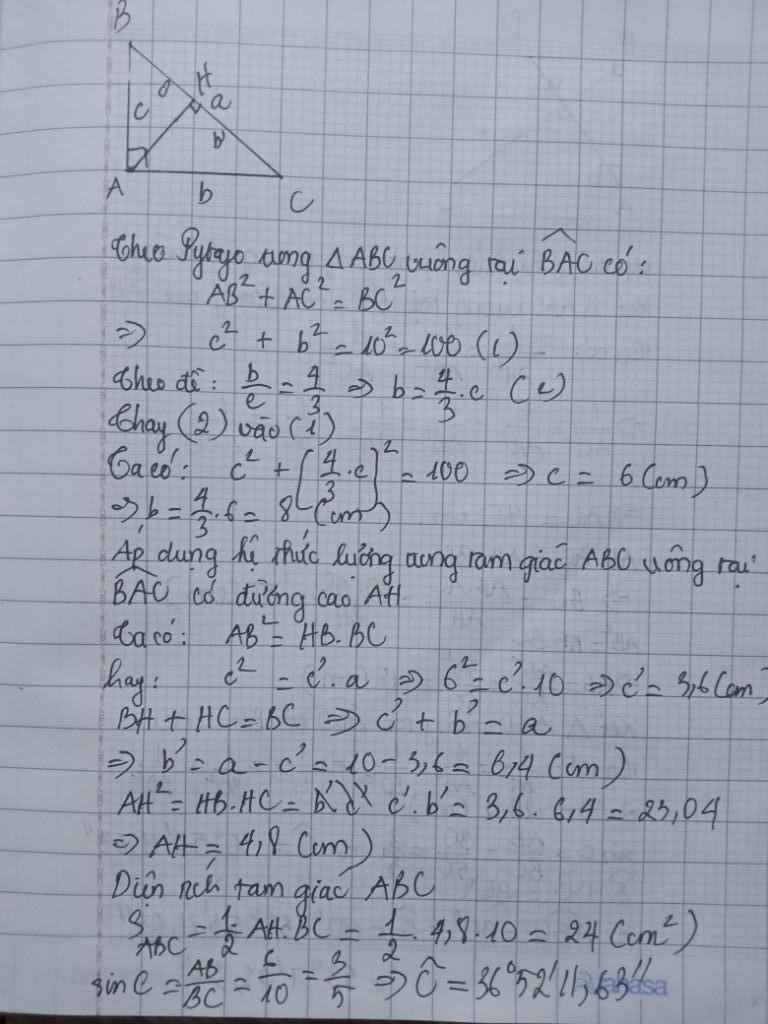 B
H
c
a
A
b
C
Theo Pytago trong △ABC vuông tại \widehat{BAC} có:
AB² + AC² = BC²
⇒ c² + b² = 10² = 100 (1)
Theo đề: b/c = 4/3 ⇒ b = 4/3 . c (2)
Thay (2) vào (1)
Ta có: c² + [4/3 . c]² = 100 ⇒ c = 6 (cm)
⇒ b = 4/3 . 6 = 8 (cm)
Áp dụng hệ thức lượng trong tam giác ABC vuông tại
\widehat{BAC} có đường cao AH
Ta có: AB² = HB. BC
hay: c² = c'. a ⇒ 6² = c'. 10 ⇒ c' = 3,6 (cm)
BH + HC = BC ⇒ c' + b' = a
⇒ b' = a - c' = 10 - 3,6 = 6,4 (cm)
AH² = HB. HC = c'. b' = 3,6. 6,4 = 23,04
⇒ AH = 4,8 (cm)
Diện tích tam giác ABC
S_ABC = 1/2 AH. BC = 1/2 . 4,8. 10 = 24 (cm²)
sin C = AB/BC = 6/10 = 3/5 ⇒ Ĉ = 36°52'11,63''